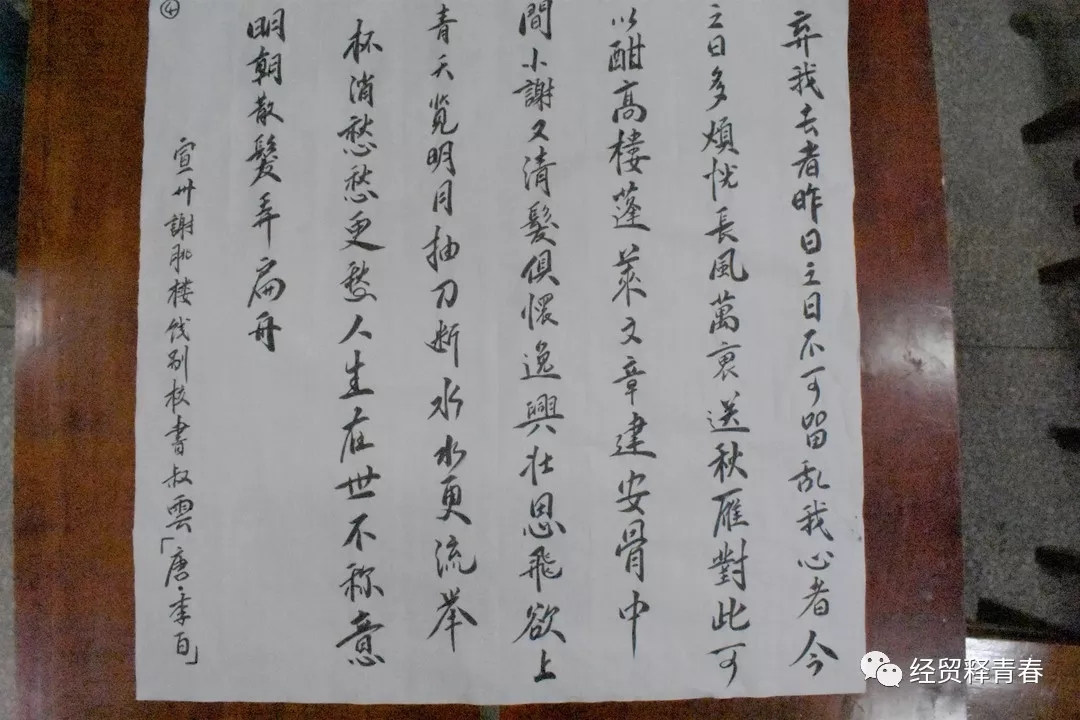 弃我去者昨日之日不可留乱我心者今
之日多煩忧長風萬裏送秋雁對此可
以酣高楼蓬莱文章建安骨中
間小謝又清髮俱懷逸興壮思飛欲上
青天览明月抽刀断水水更流举
杯消愁愁更愁人生在世不称意
明朝散髮弄扁舟
宣州謝朓楼饯别校書叔雲「唐·李白」
④
经贸释青春